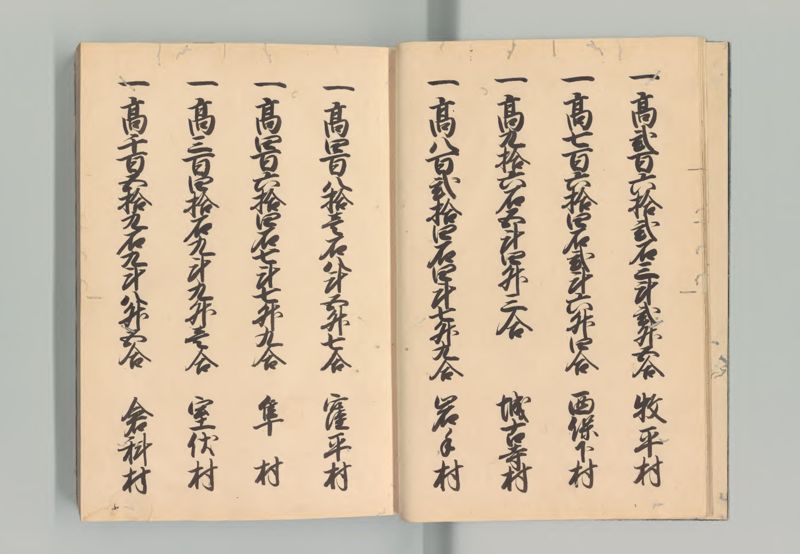 一高弐百六拾弐石三斗弐升五合 牧平村
一高七百六拾四石弐斗六升四合 西保下村
一高九拾六石五斗四升二合 城古寺村
一高八百弐拾四石四斗七升九合 岩手村
一高四百八拾壱石八斗五升七合 窪平村
一高四百六拾四石七斗七升九合 隼村
一高三百四拾石九斗九升壱合 室伏村
一高千百五拾九石九斗八升五合 倉科村